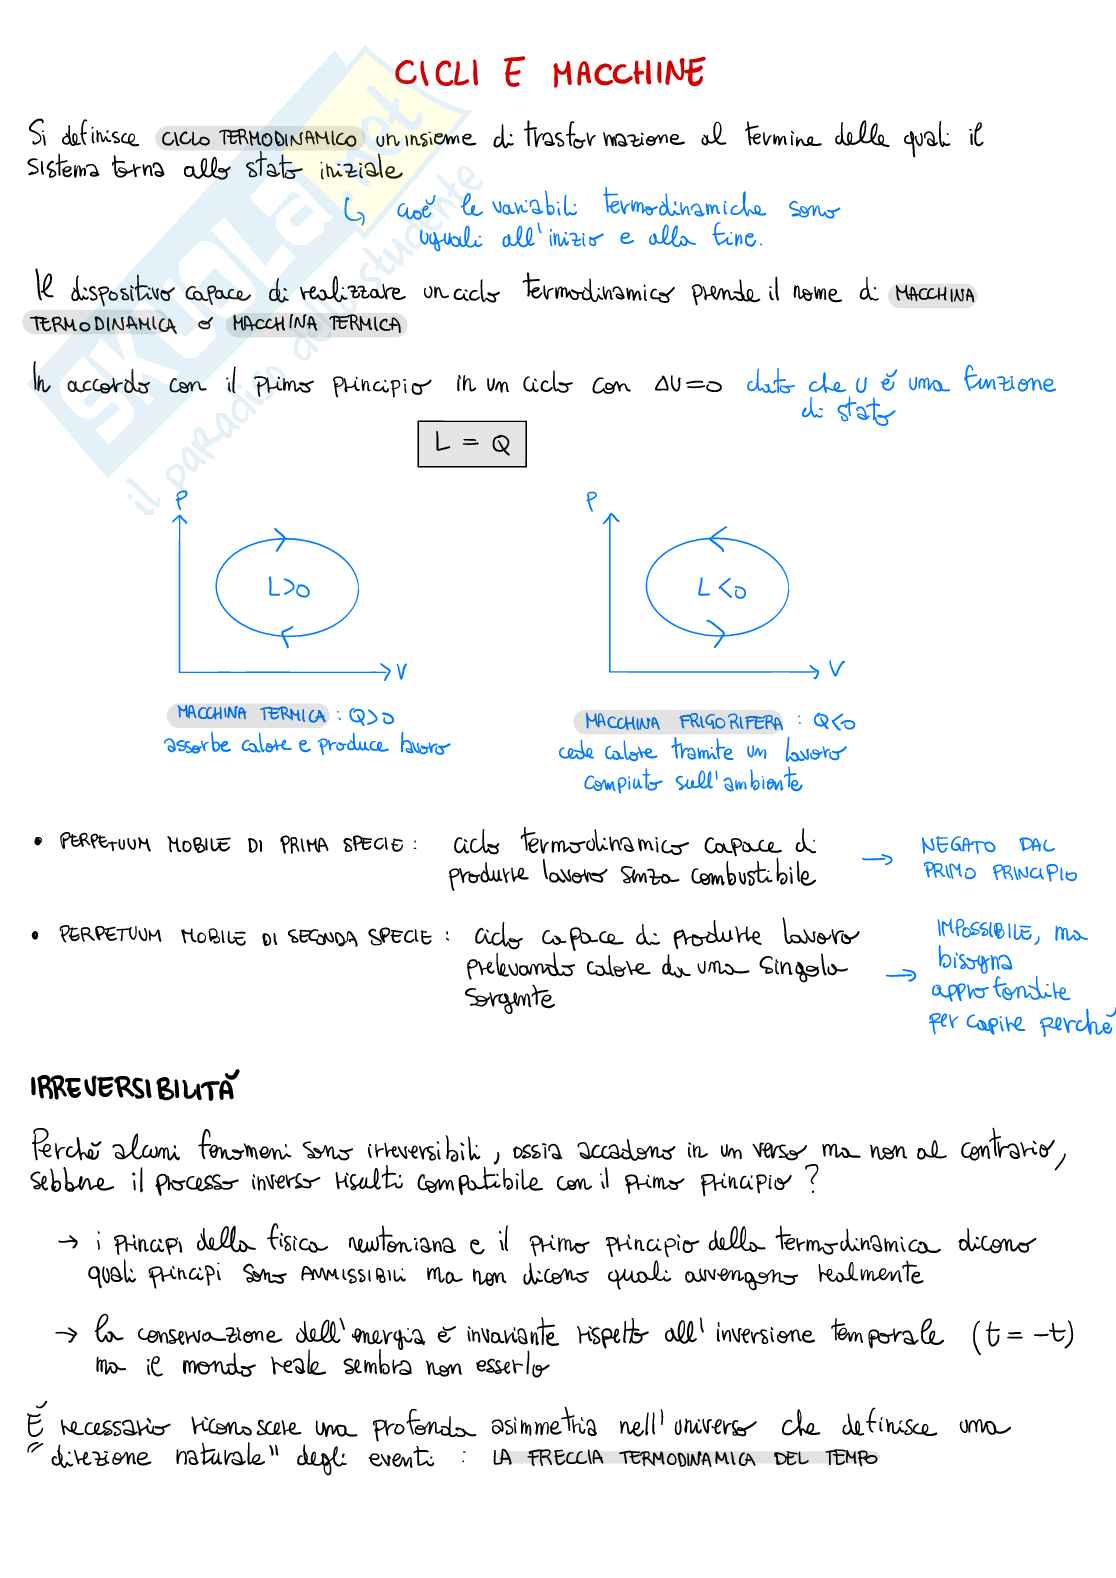 CICLI E MACCHINE
Si definisce CICLO TERMODINAMICO un insieme di trasformazione al termine delle quali il
sistema torna allo stato iniziale
↳ cioè le variabili termodinamiche sono
uguali all'inizio e alla fine.
Il dispositivo capace di realizzare un ciclo termodinamico prende il nome di MACCHINA
TERMODINAMICA o MACCHINA TERMICA
In accordo con il primo principio in un ciclo con ΔU=0 dato che U è una funzione
di stato
L = Q
P
L>0
V
P
L<0
V
MACCHINA TERMICA : Q>0
assorbe calore e produce lavoro
MACCHINA FRIGORIFERA : Q<0
cede calore tramite un lavoro
compiuto sull'ambiente
• PERPETUUM MOBILE DI PRIMA SPECIE : ciclo termodinamico capace di
produrre lavoro senza combustibile
→ NEGATO DAL
PRIMO PRINCIPIO
• PERPETUUM MOBILE DI SECONDA SPECIE : ciclo capace di produrre lavoro
prelevando calore da una singola
sorgente
→ IMPOSSIBILE, ma
bisogna
approfondire
per capire perchè
IRREVERSIBILITÀ
Perchè alcuni fenomeni sono irreversibili, ossia accadono in un verso ma non al contrario,
sebbene il processo inverso risulti compatibile con il primo principio ?
→ i principi della fisica newtoniana e il primo principio della termodinamica dicono
quali principi sono AMMISSIBILI ma non dicono quali avvengono realmente
→ la conservazione dell'energia è invariante rispetto all'inversione temporale (t = -t)
ma il mondo reale sembra non esserlo
È necessario riconoscere una profonda asimmetria nell'universo che definisce una
"direzione naturale" degli eventi : LA FRECCIA TERMODINAMICA DEL TEMPO
SKUOLA.net
il paradiso dello studente